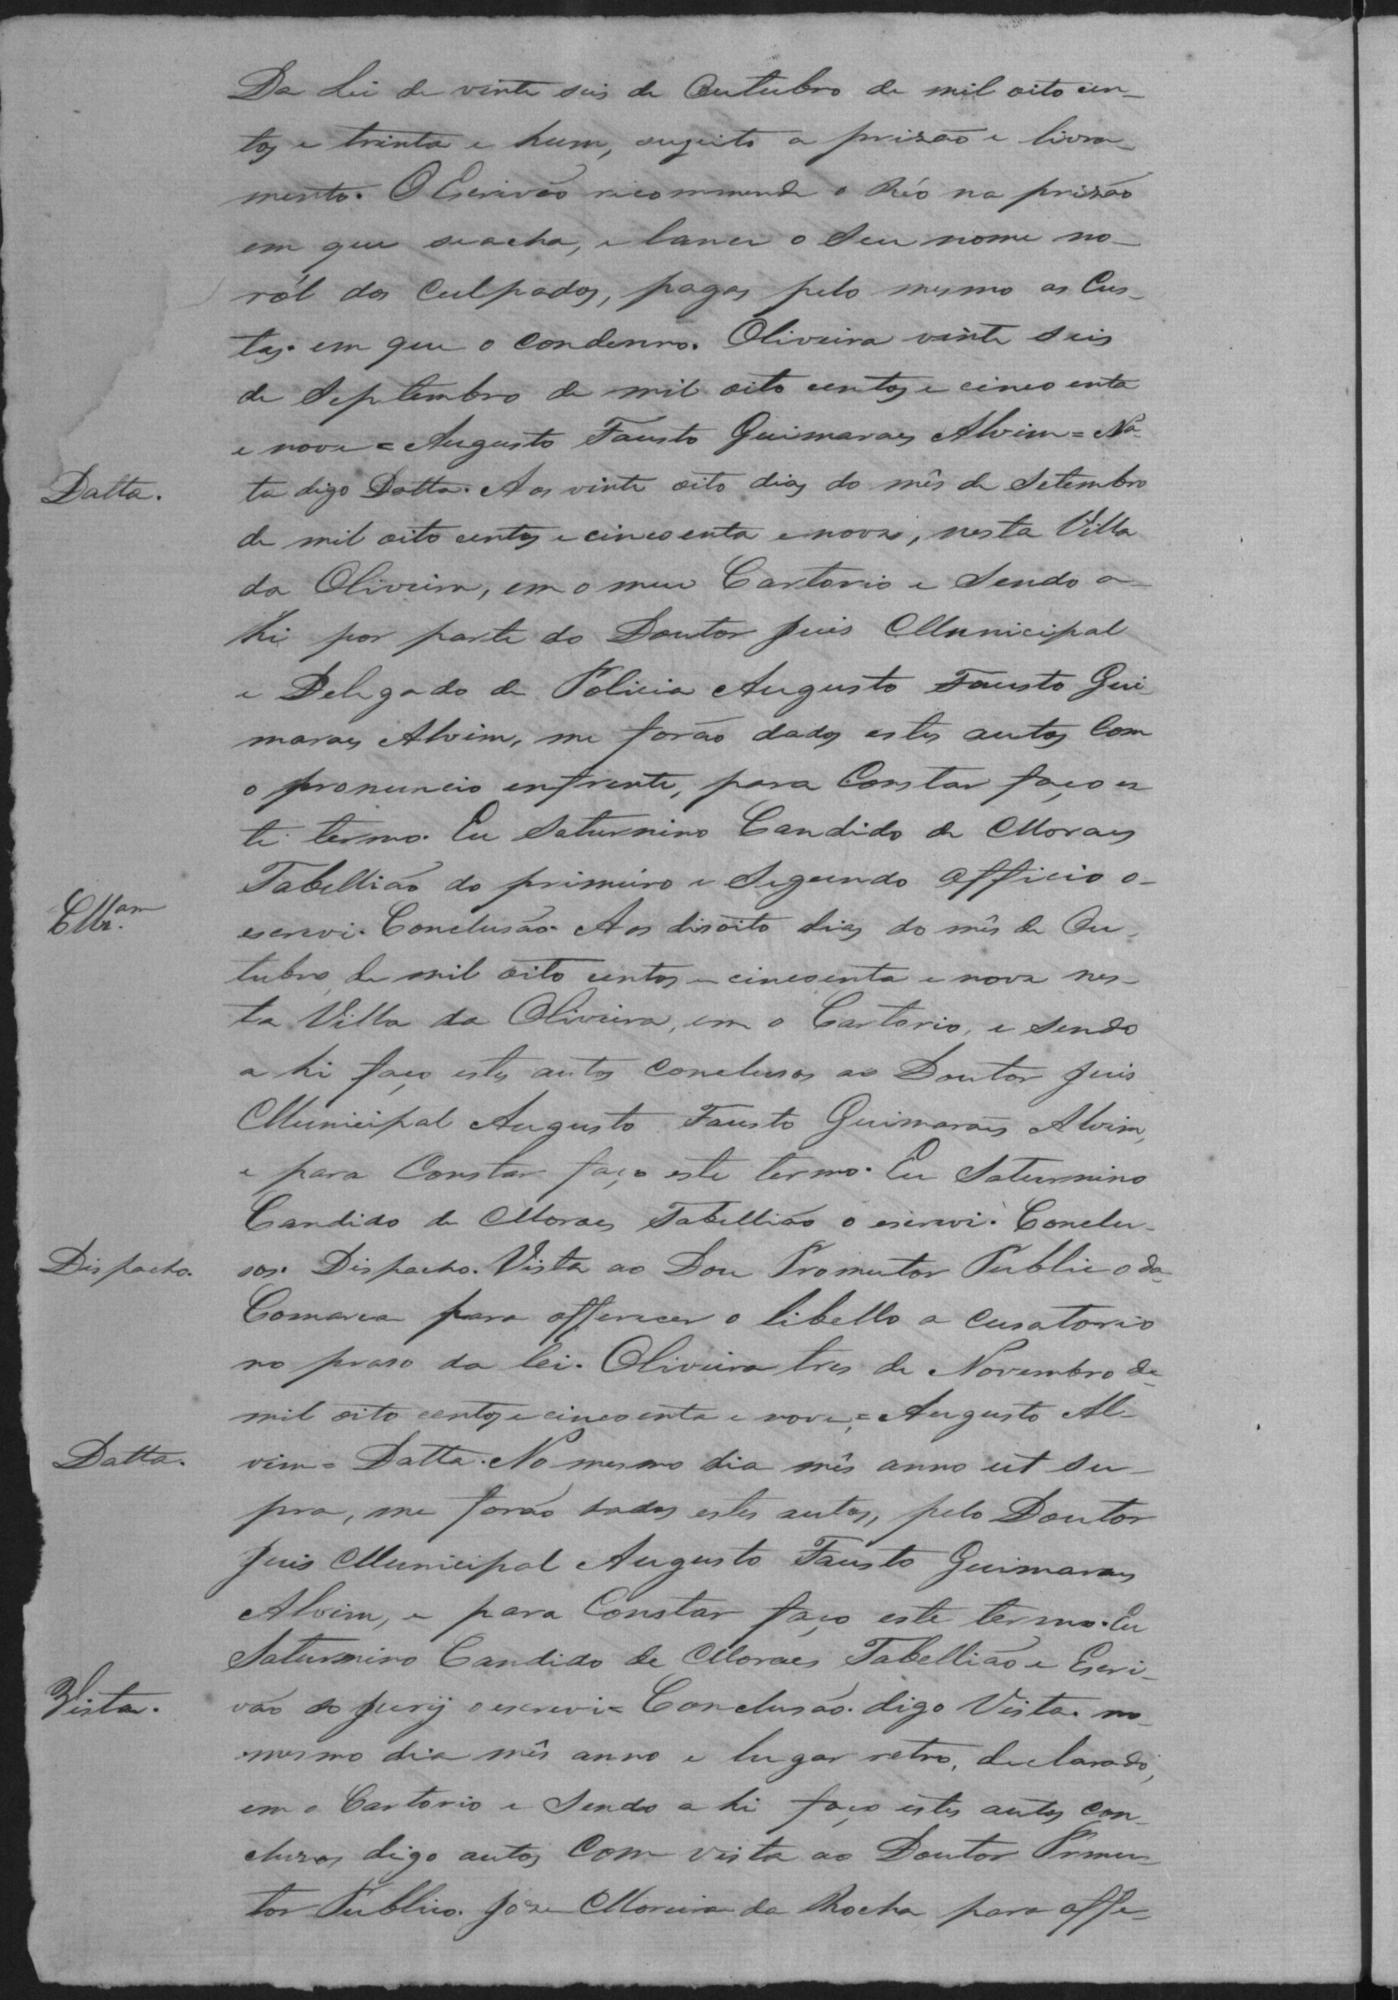 Da Lei de vinte seis de Outubro de mil oito cen-
tos e trinta e hum, sugeito a prizão e livra-
mento. O Escrivão recommende o Réo na prizão
em que seacha, e lance o seu nome no-
ról dos Culpados, pagas pelo mesmo as Cus-
tas. em que o condenno. Oliveira vinte seis
de Septembro de mil oito centos e cincoenta
e nove = Augusto Fausto Guimaraes Alvim = Na-
Datta.
ta digo Datta. Aos vinte oito dias do mês de Setembro
de mil oito centos e cincoenta e nove, nesta Villa
da Oliveira, em o meu Cartorio e Sendo a-
hi por parte do Doutor Juis Municipal
e Delegado de Policia Augusto Fausto Gui
maraes Alvim, me forão dados estes autos Com
o pronuncio enfrente, para Constar faço es
te termo. Eu Saturnino Candido de Moraes
Tabellião do primeiro e Segundo Officio o-
escrevi. Conclusão. Aos disoito dias do mês de Ou-
tubro, de mil oito centos e cincoenta e nove nes-
ta Villa da Oliveira, em o Cartorio, e sendo
a hi faço estes autos Conclusos ao Doutor Juis
Municipal Augusto Fausto Guimarães Alvim,
e para Constar faço este termo. Eu Saturnino
Candido de Moraes Tabellião o escrevi. Conclu-
Dispacho.
sos. Dispacho. Vista ao Dou Promutor Publico da-
Comarca para offerecer o libello a cusatorio
no praso da lei. Oliveira tres de Novembro de
mil oito centos e cincoenta e nove, = Augusto Al-
Datta.
vim = Datta. No mesmo dia mês anno ut su-
pra, me forão dados estes autos, pelo Doutor
Juis Municipal Augusto Fausto Guimaraes
Alvim, e para Constar faço este termo. Eu
Saturnino Candido de Moraes Tabellião e Escri-
Vista.
vão do Jury o escrevi = Conclusão. digo Vista. no-
mesmo dia mês anno e lugar retro, declarado,
em o Cartorio e Sendo a hi faço estes autos Con-
cluzos digo autos Com vista ao Doutor Promu-
tor Publico. Joze Moreira da Rocha para offe-